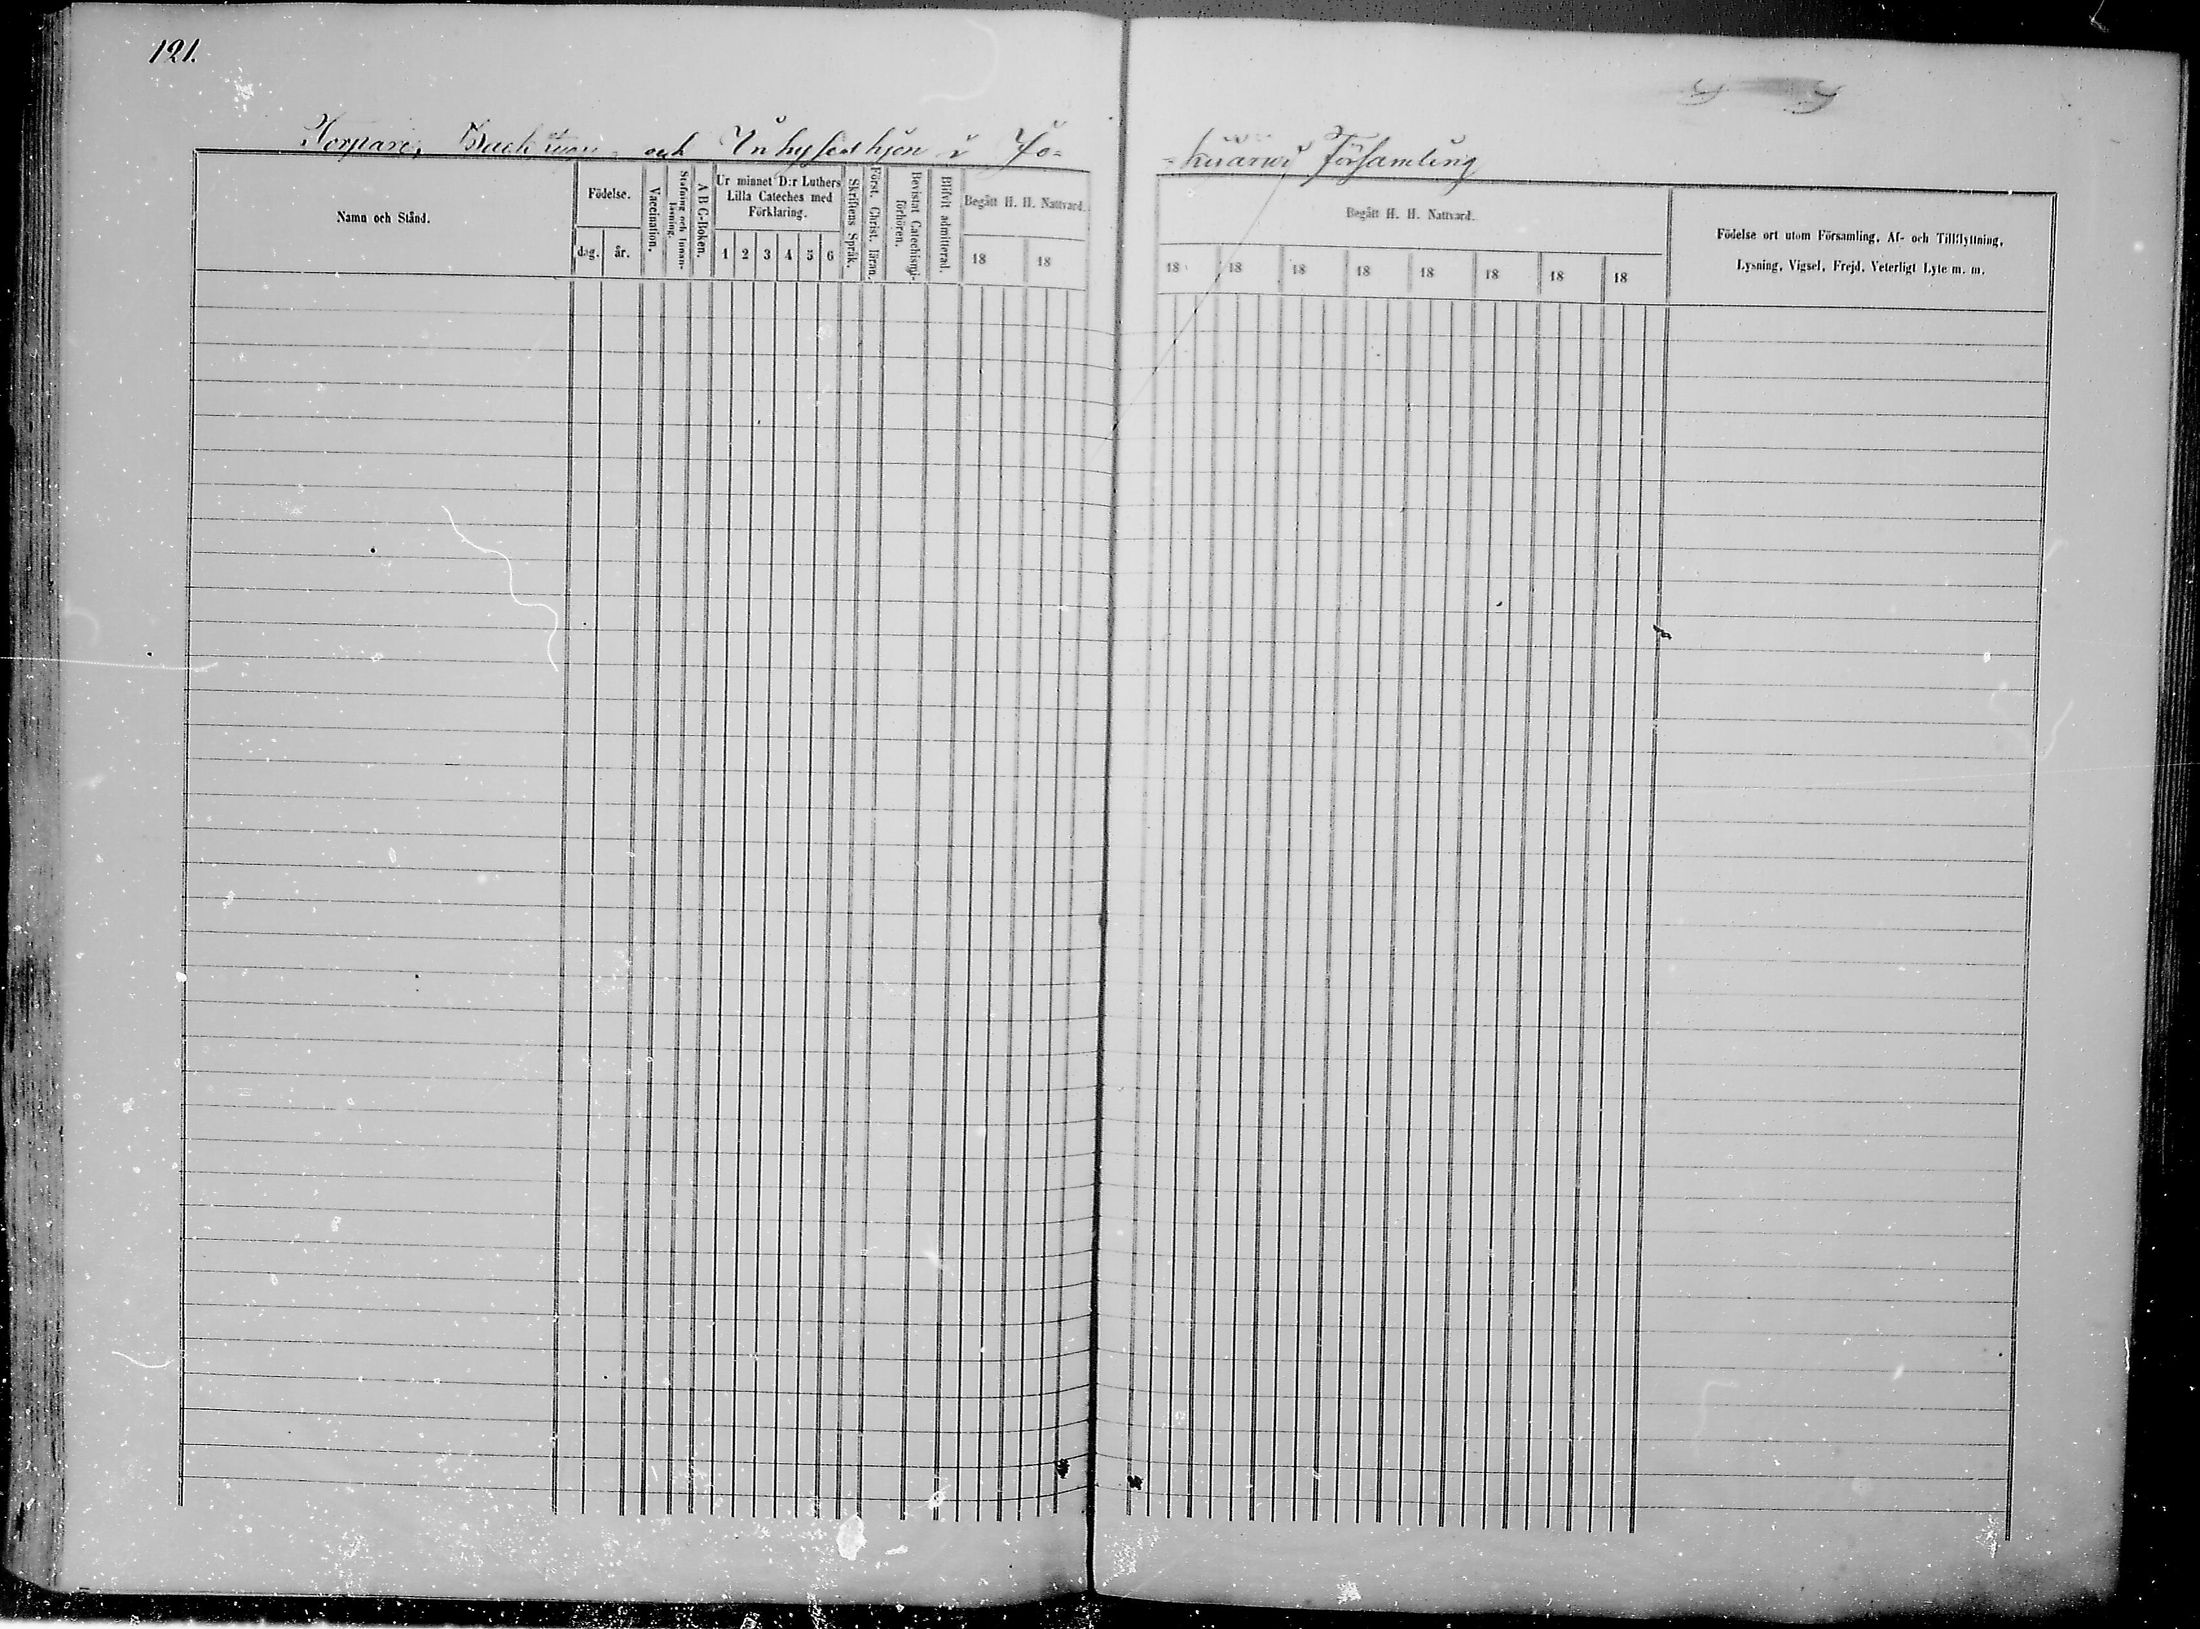 121.
Torpare, Backstugu- och Inhyseshjon i Jo-
-kuarns Församling
Namn och Stånd.
Födelse.
dag. år.
Vaccination.
Stafning och Innan-läsning.
A B C-Boken.
Ur minnet D:r Luthers
Lilla Cateches med
Förklaring.
1 2 3 4 5 6
Skriftens Språk.
Först. Christ. läran.
Bevistat Catechismi-förhören.
Blifvit admitterad.
Begått H. H. Nattvard.
18 18
Begått H. H. Nattvard.
18 18 18 18 18 18 18 18
Födelse ort utom Församling, Af- och Tillflyttning,
Lysning, Vigsel, Frejd, Veterligt Lyte m. m.